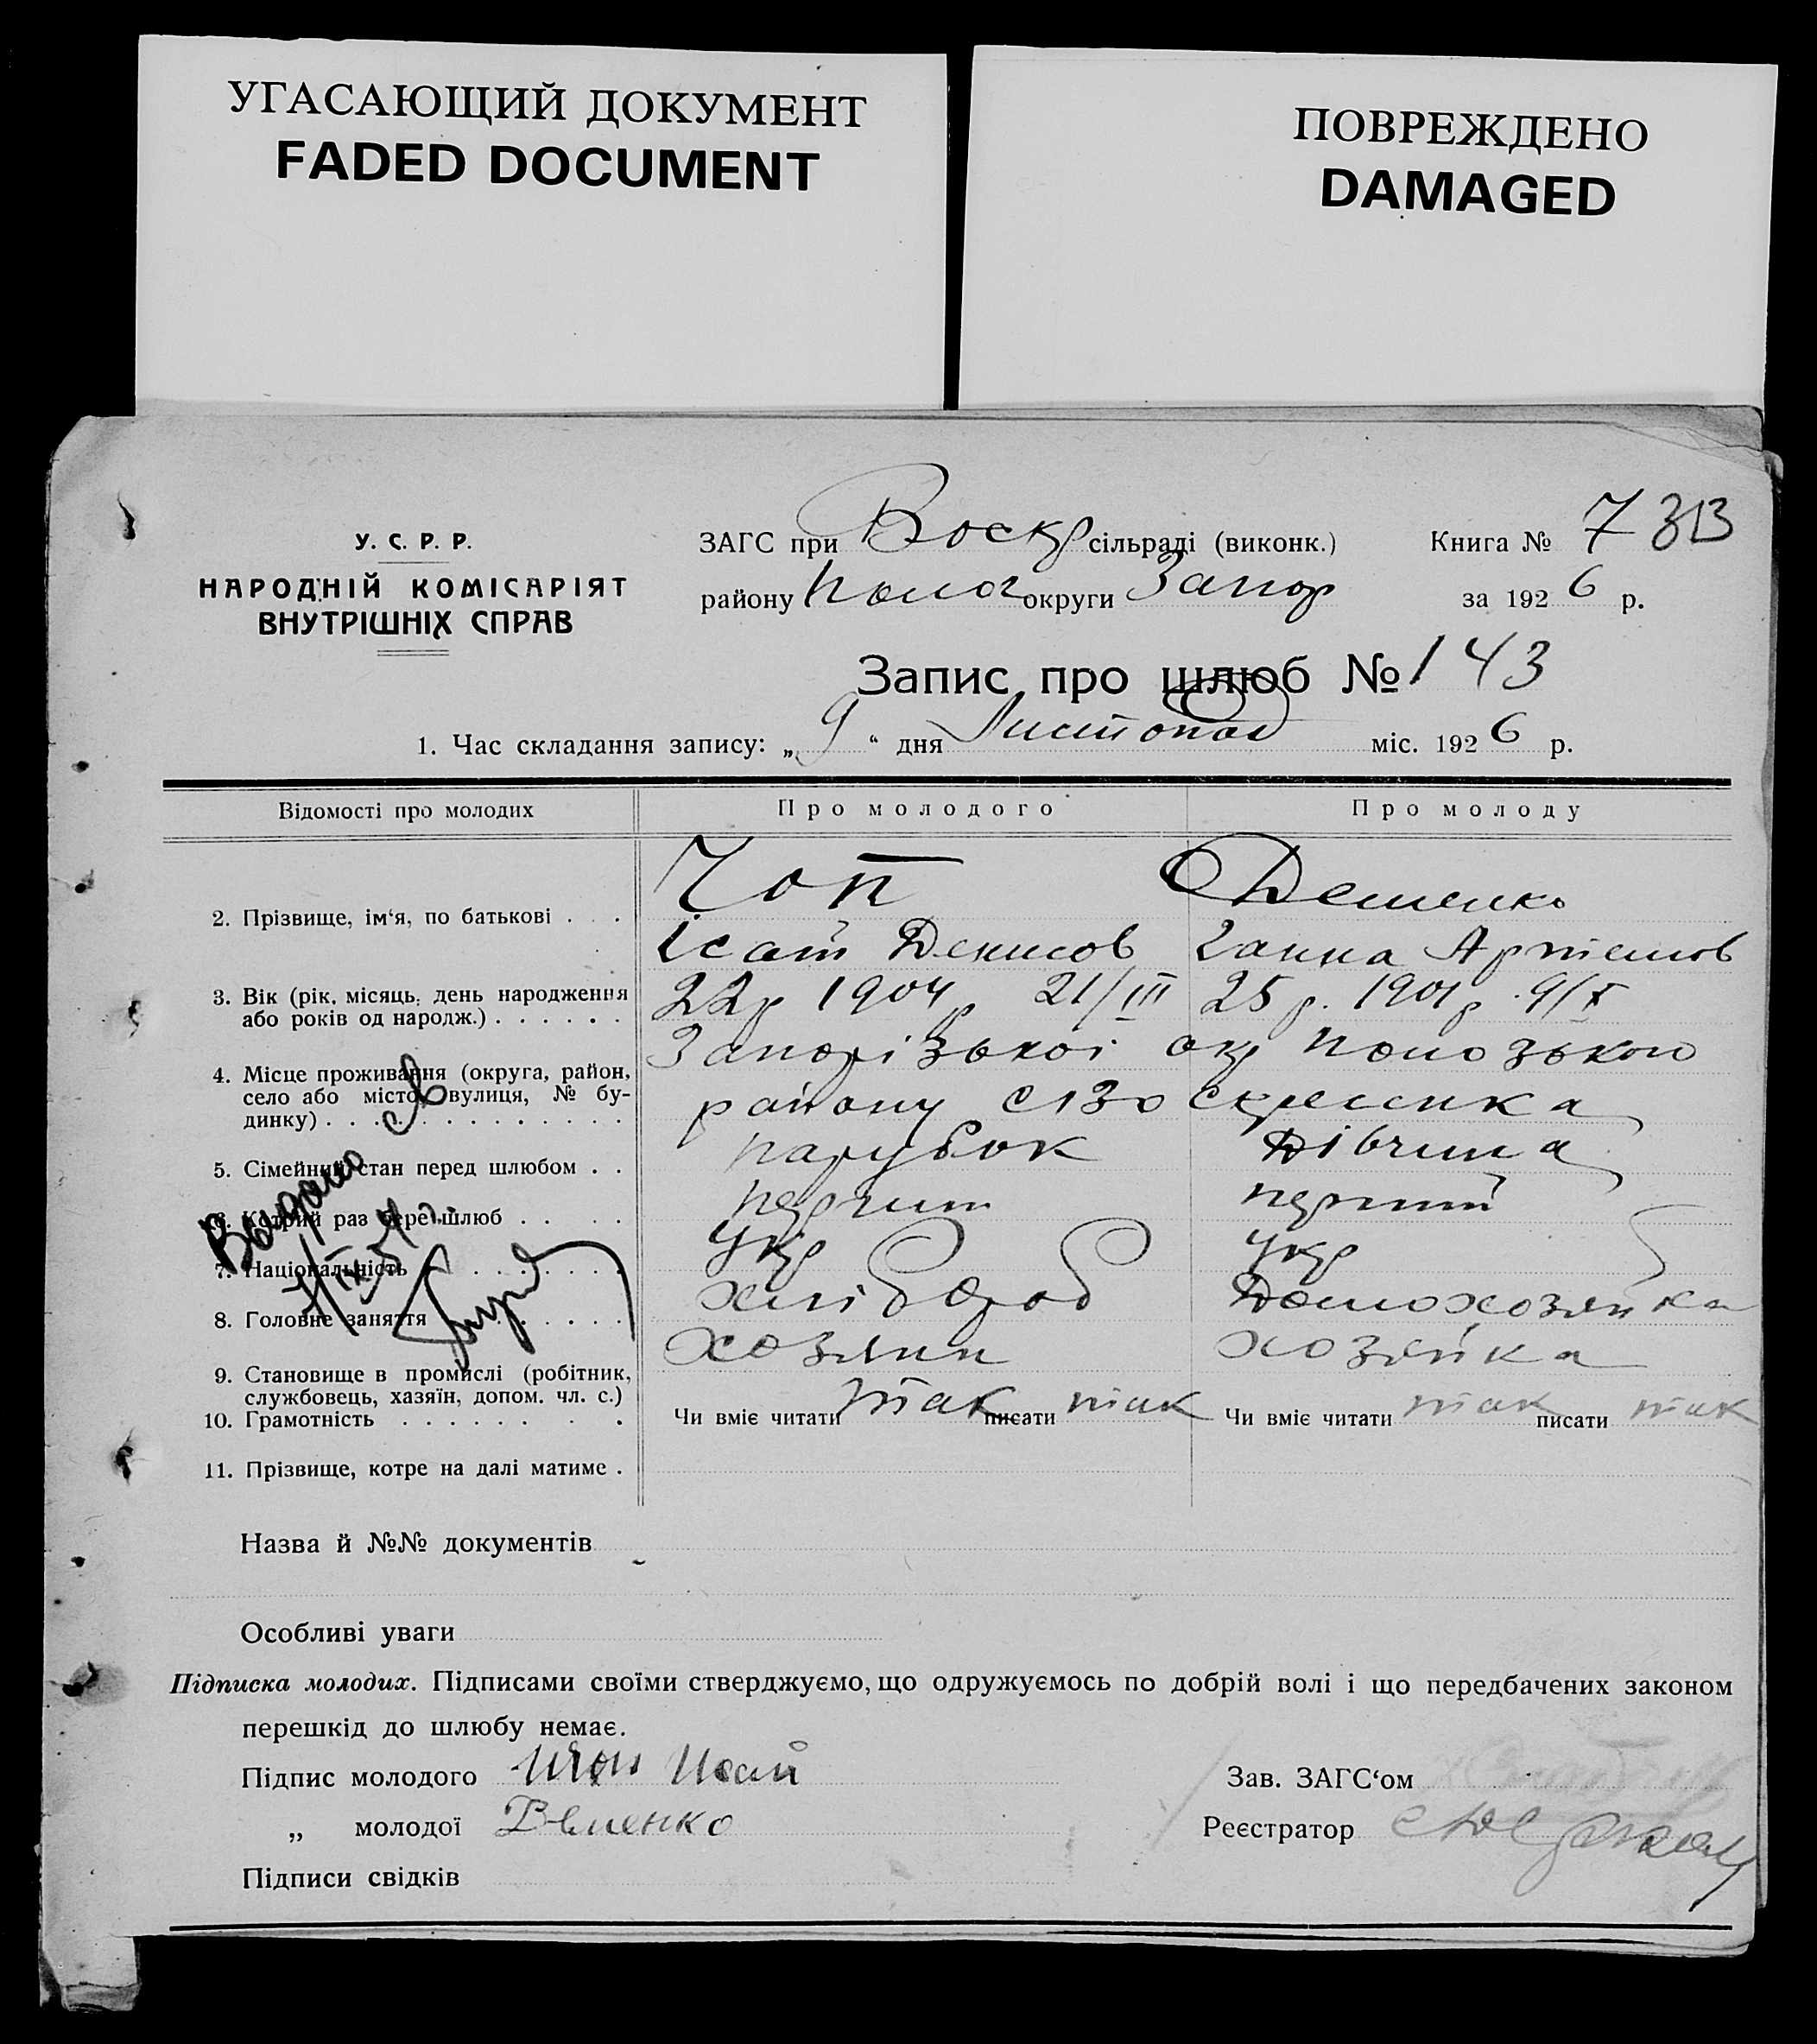 УГАСАЮЩИЙ ДОКУМЕНТ
FADED DOCUMENT
ПОВРЕЖДЕНО
DAMAGED
У. С. Р. Р.
НАРОДНІЙ КОМІСАРІЯТ
ВНУТРІШНІХ СПРАВ
ЗАГС при Воскр сільраді (виконк.)
району Полог округи Запор
Книга № 7
за 1926 р.
Запис про шлюб № 143
1. Час складання запису: „9“ дня Листопад міс. 1926 р.
Відомості про молодих Про молодого Про молоду
Чоп Демен­ко
2. Прізвище, ім‘я, по батькові . . .
Ісай Денисов Ганна Артемов
3. Вік (рік, місяць, день народження 22р 1904р 21/III 25р. 1901р. 9/X
або років од народж.) . . . . . .
Запорізької окр Пологзького
4. Місце проживання (округа, район,
село або місто, вулиця, № бу-
динку) . . . . . . . . . . . . .
району с Воскресенка
5. Сімейний стан перед шлюбом . . парубок Дівчина
6. Котрий раз бере шлюб . . . . перший перший
7. Національність . . . . . . . . укр укр
8. Головне заняття . . . . . . хлібороб Домохозяйка
9. Становище в промислі (робітник, хозяин хозяйка
службовець, хазяїн, допом. чл. с.)
10. Грамотність . . . . . . . . Чи вміє читати так писати так Чи вміє читати так писати так
11. Прізвище, котре на далі матиме .
Выдано св
Назва й №№ документів
Особливі уваги
Підписка молодих. Підписами своїми стверджуємо, що одружуємось по добрій волі і що передбачених законом
перешкід до шлюбу немає.
Підпис молодого Чоп Исай
„ молодої Деменко
Підписи свідків
Зав. ЗАГС‘ом
Реєстратор